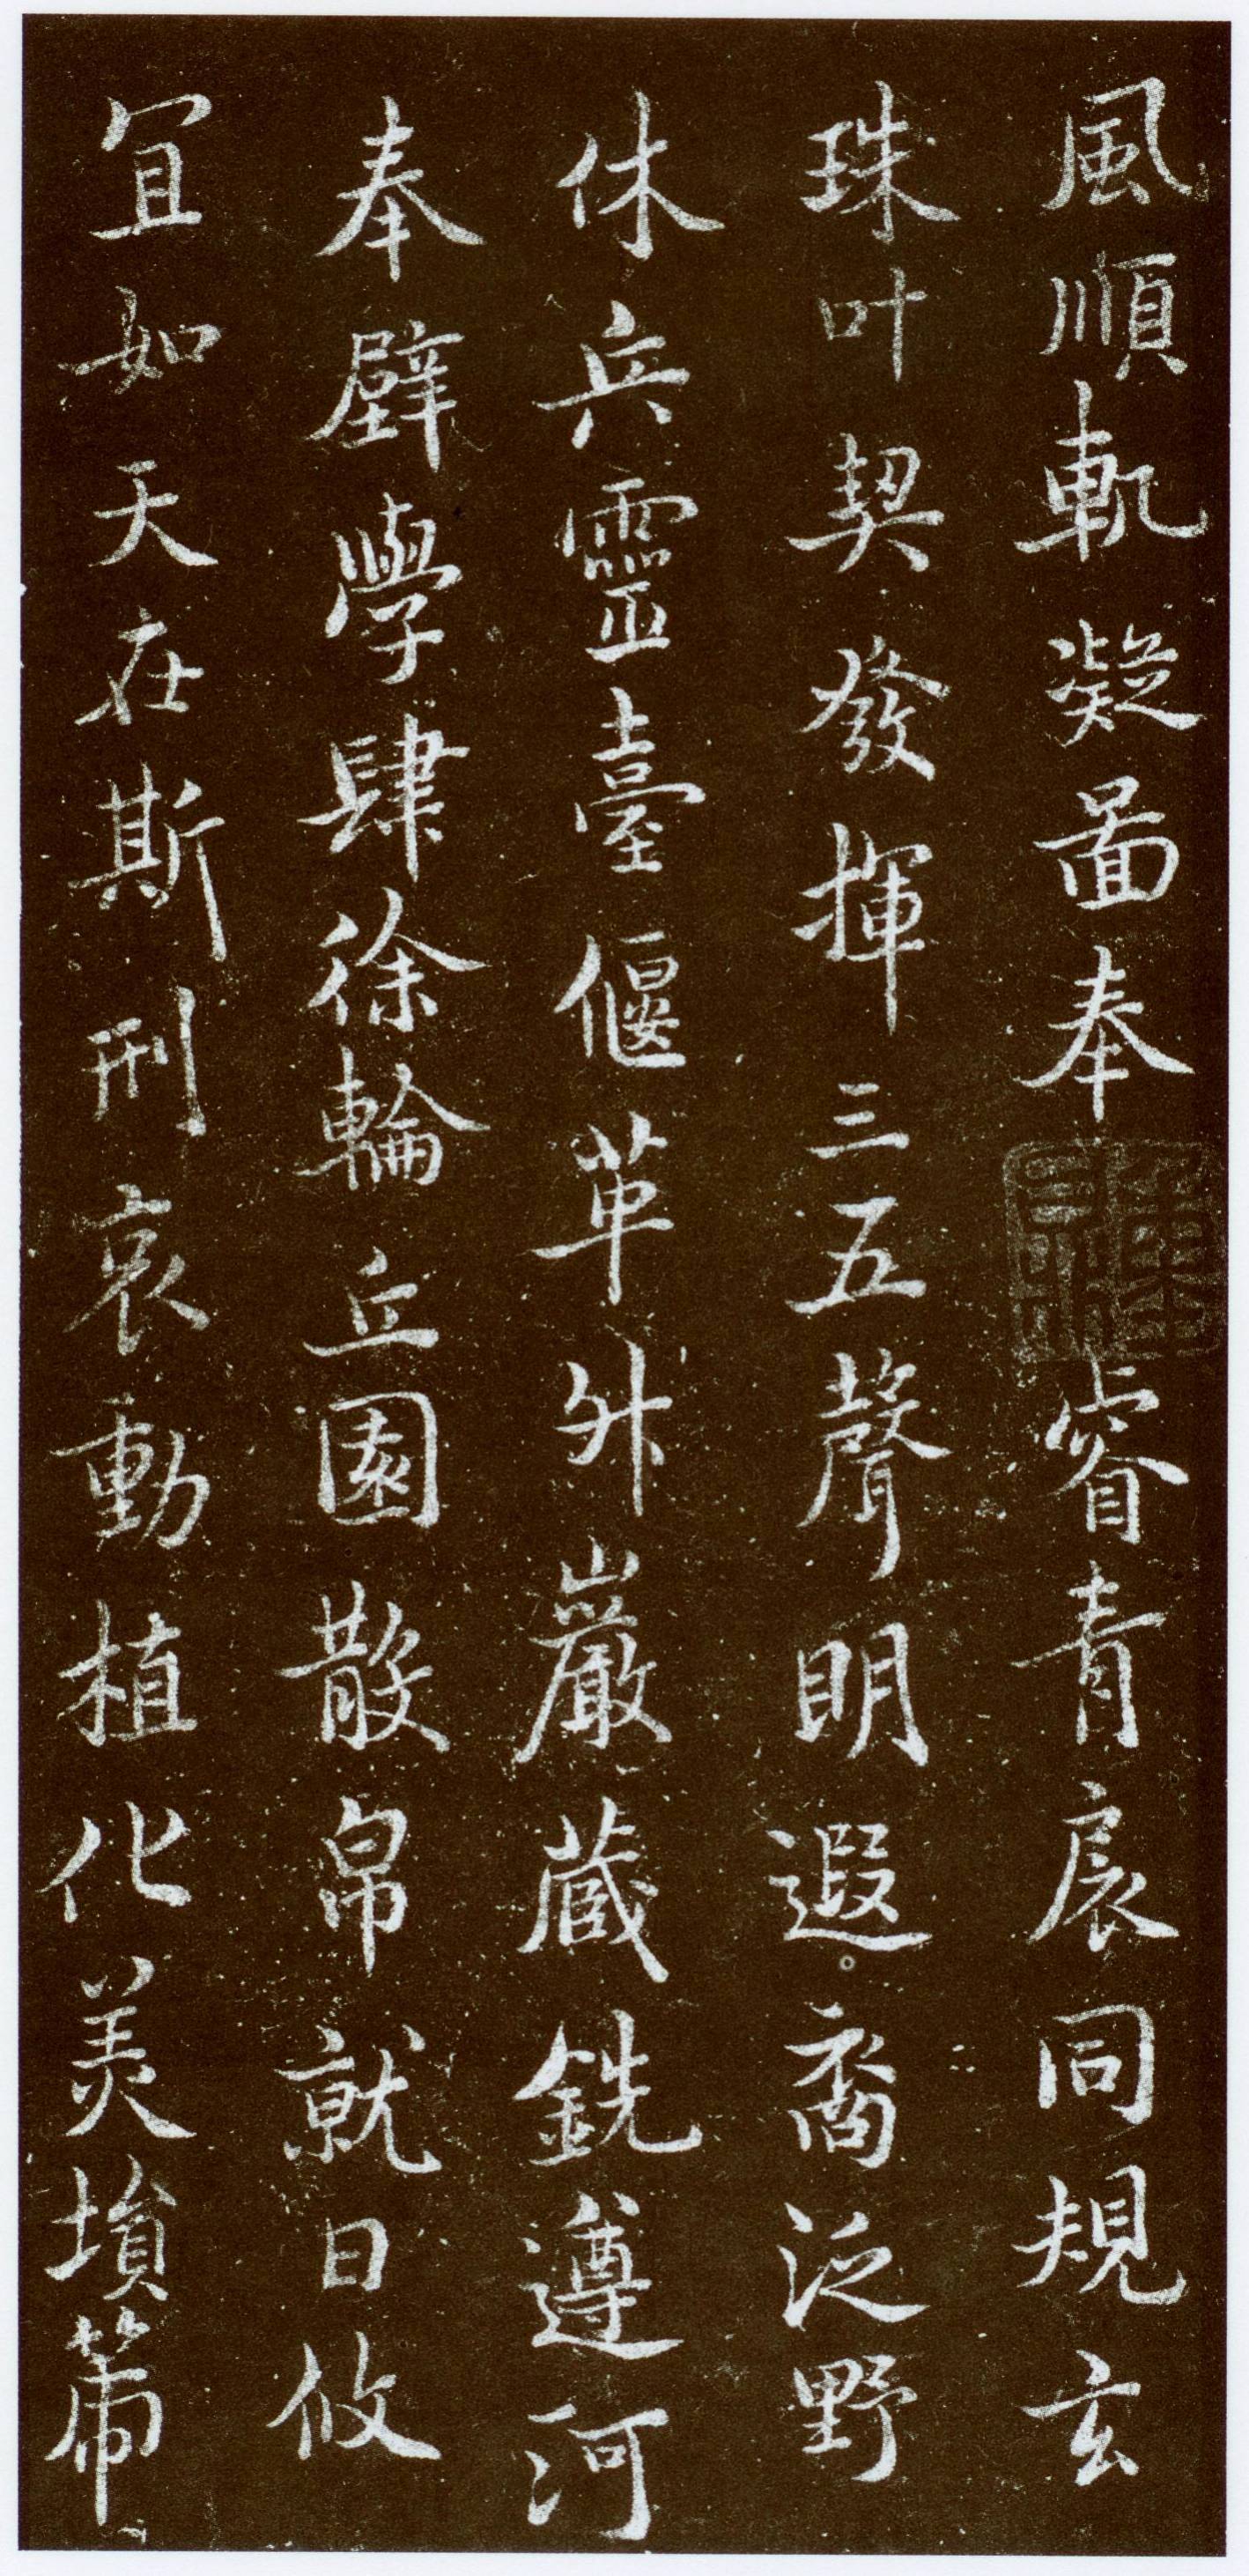 風順軌凝啚奉睿青扆同規玄
珠叶契發揮三五聲明遐裔泛野
休兵靈臺偃革外巖蔵銑遵河
奉璧學肆徐輪丘園散帛就日攸
宜如天在斯刑哀動植化美墳第